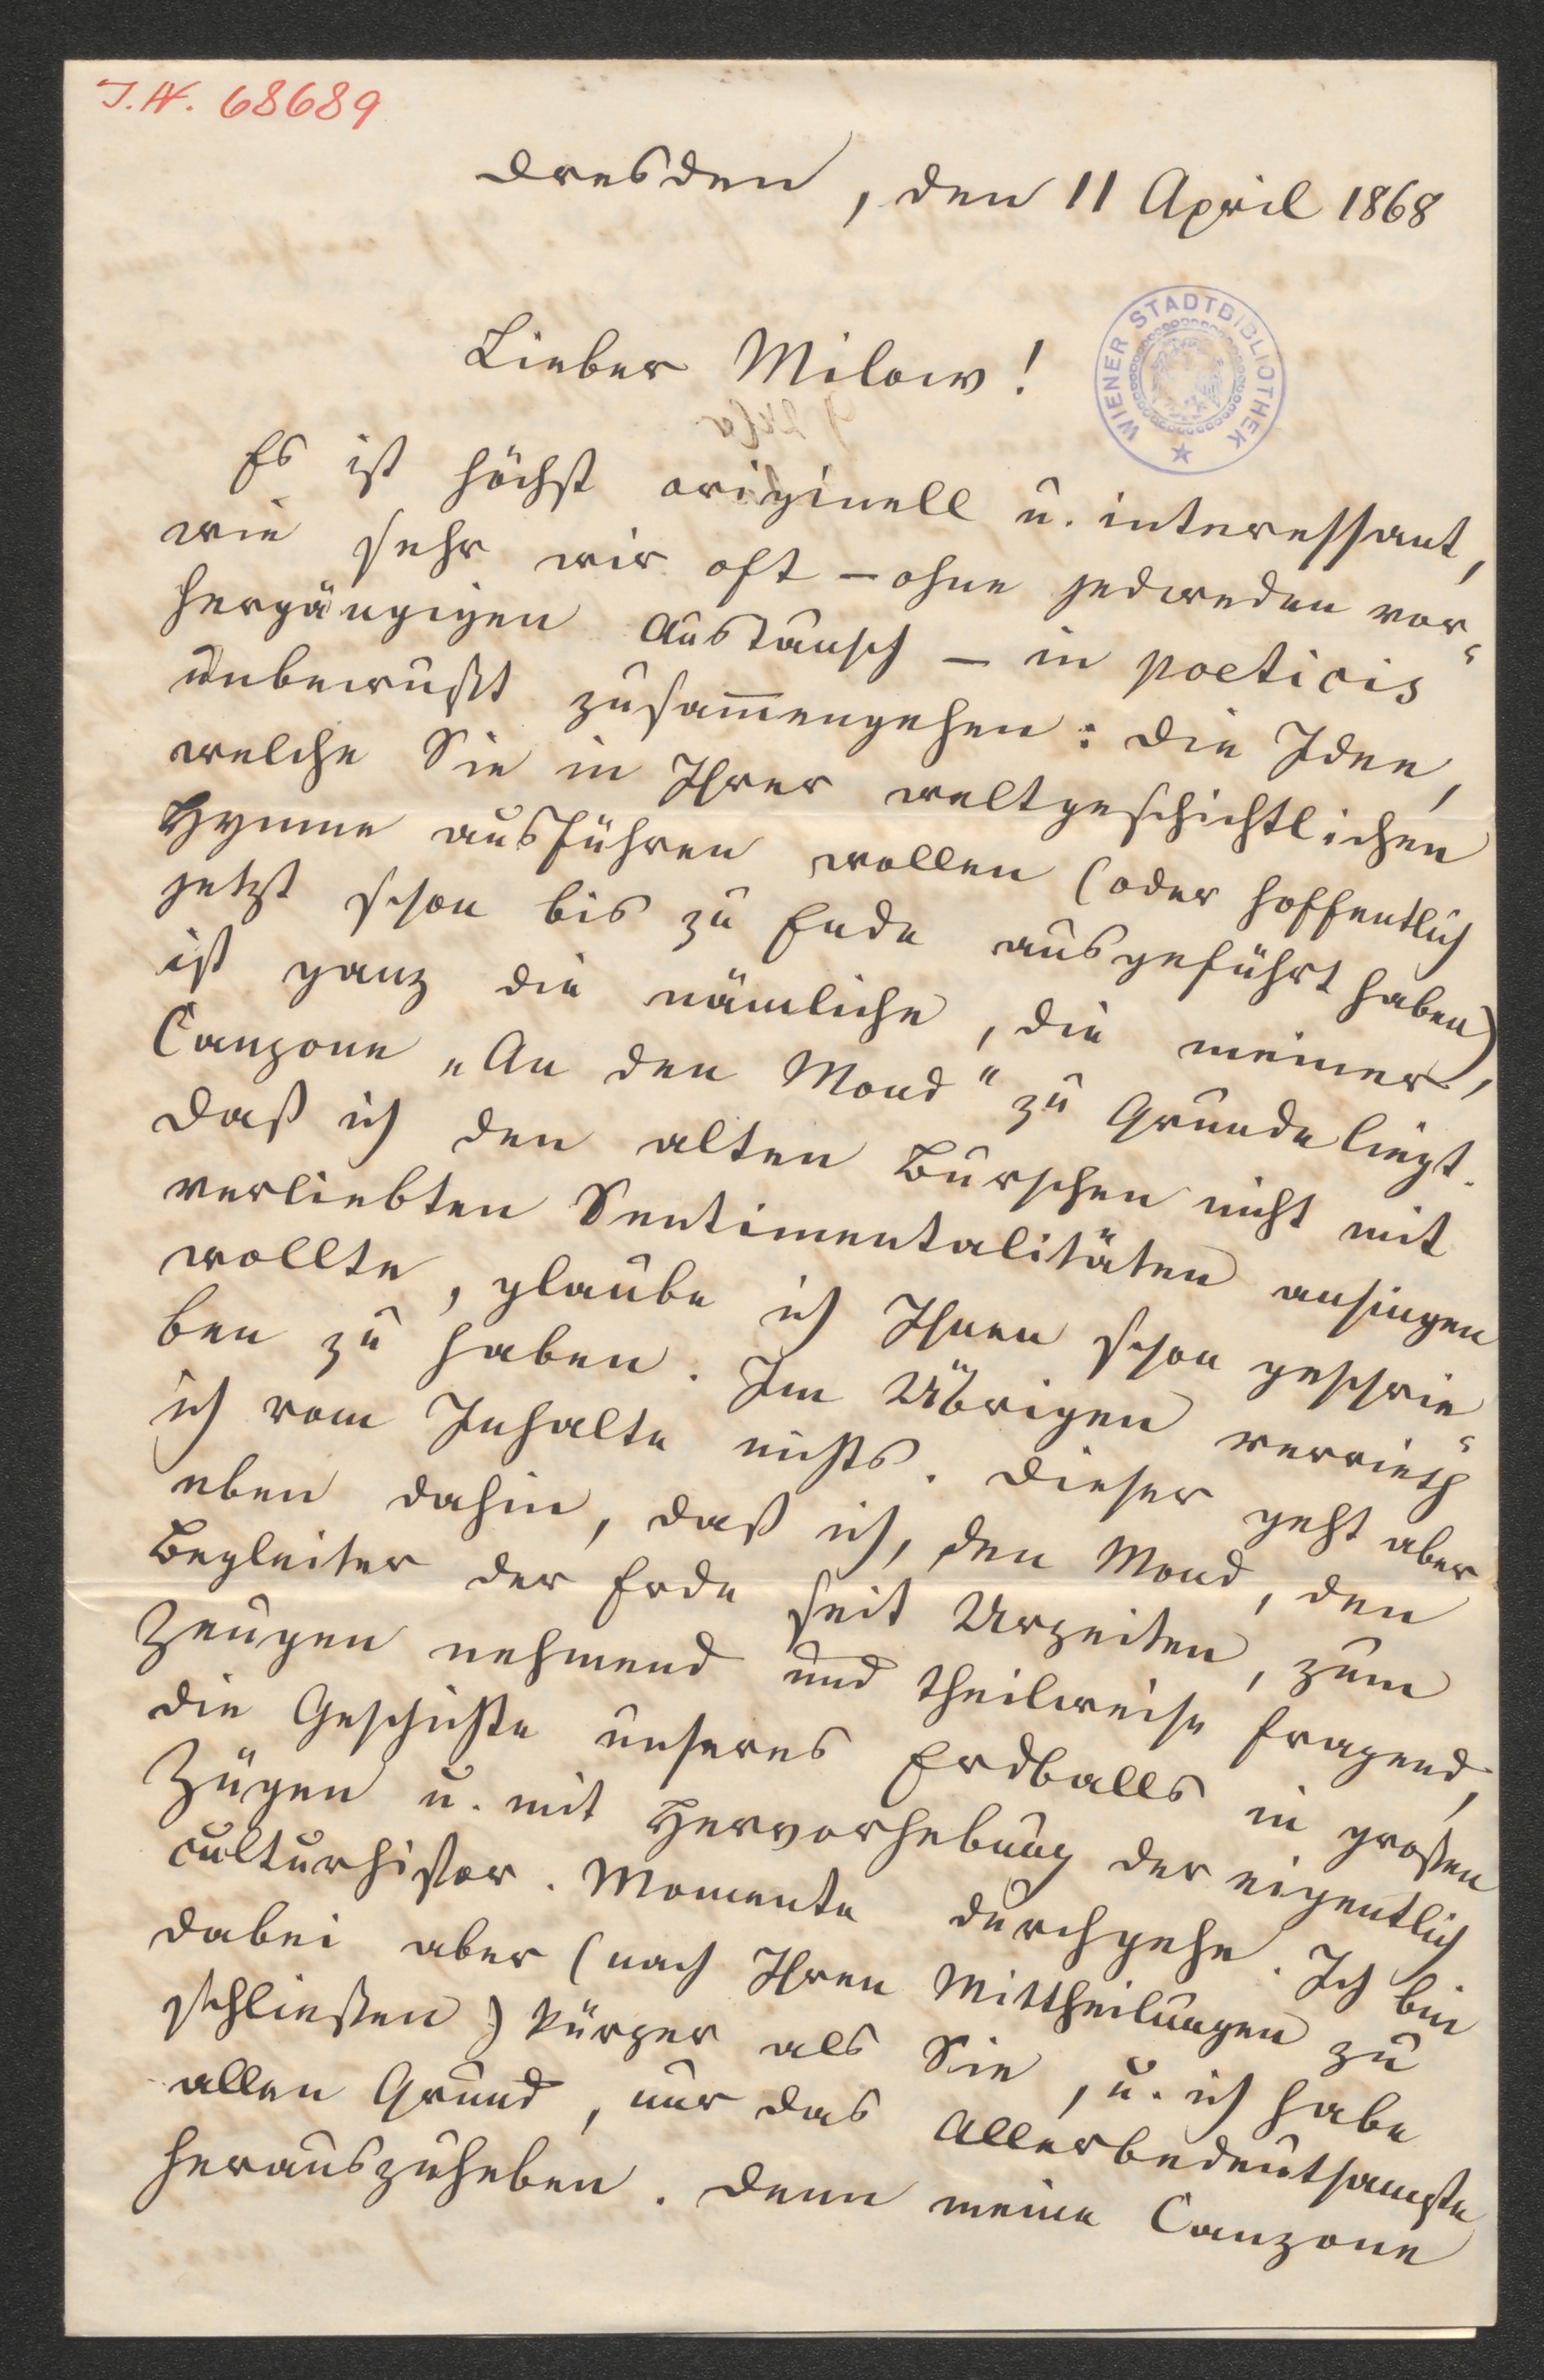 I.N. 68689
Dresden, den 11 April 1868
WIENER STADTBIBLIOTHEK
Lieber Milow!
Es ist höchst originell u. interessant,
wie sehr wir oft – ohne jedweden vor-
hergängigen Austausch – in poeticis
unbewußt zusam̅engehen: die Idee,
welche Sie in Ihrer weltgeschichtlichen
Hymne ausführen wollen (oder hoffentlich
jetzt schon bis zu Ende ausgeführt haben)
ist ganz die nämliche, die meiner
Canzone „An den Mond" zu Grunde liegt.
Daß ich den alten Burschen nicht mit
verliebten Sentimentalitäten ansingen
wollte, glaube ich Ihnen schon geschrie-
ben zu haben. Im Übrigen verrieth
ich vom Inhalte nichts. Dieser geht aber
eben dahin, daß ich, den Mond, den
Begleiter der Erde seit Urzeiten, zum
Zeugen nehmend und theilweise fragend,
die Geschichte unseres Erdballs in großen
Zügen u. mit Hervorhebung der eigentlich
culturhistor. Momente durchgehe. Ich bin
dabei aber (nach Ihren Mittheilungen zu
schließen) kürzer als Sie, u. ich habe
allen Grund, nur das Allerbedeutsamste
herauszuheben. Denn meine Canzone